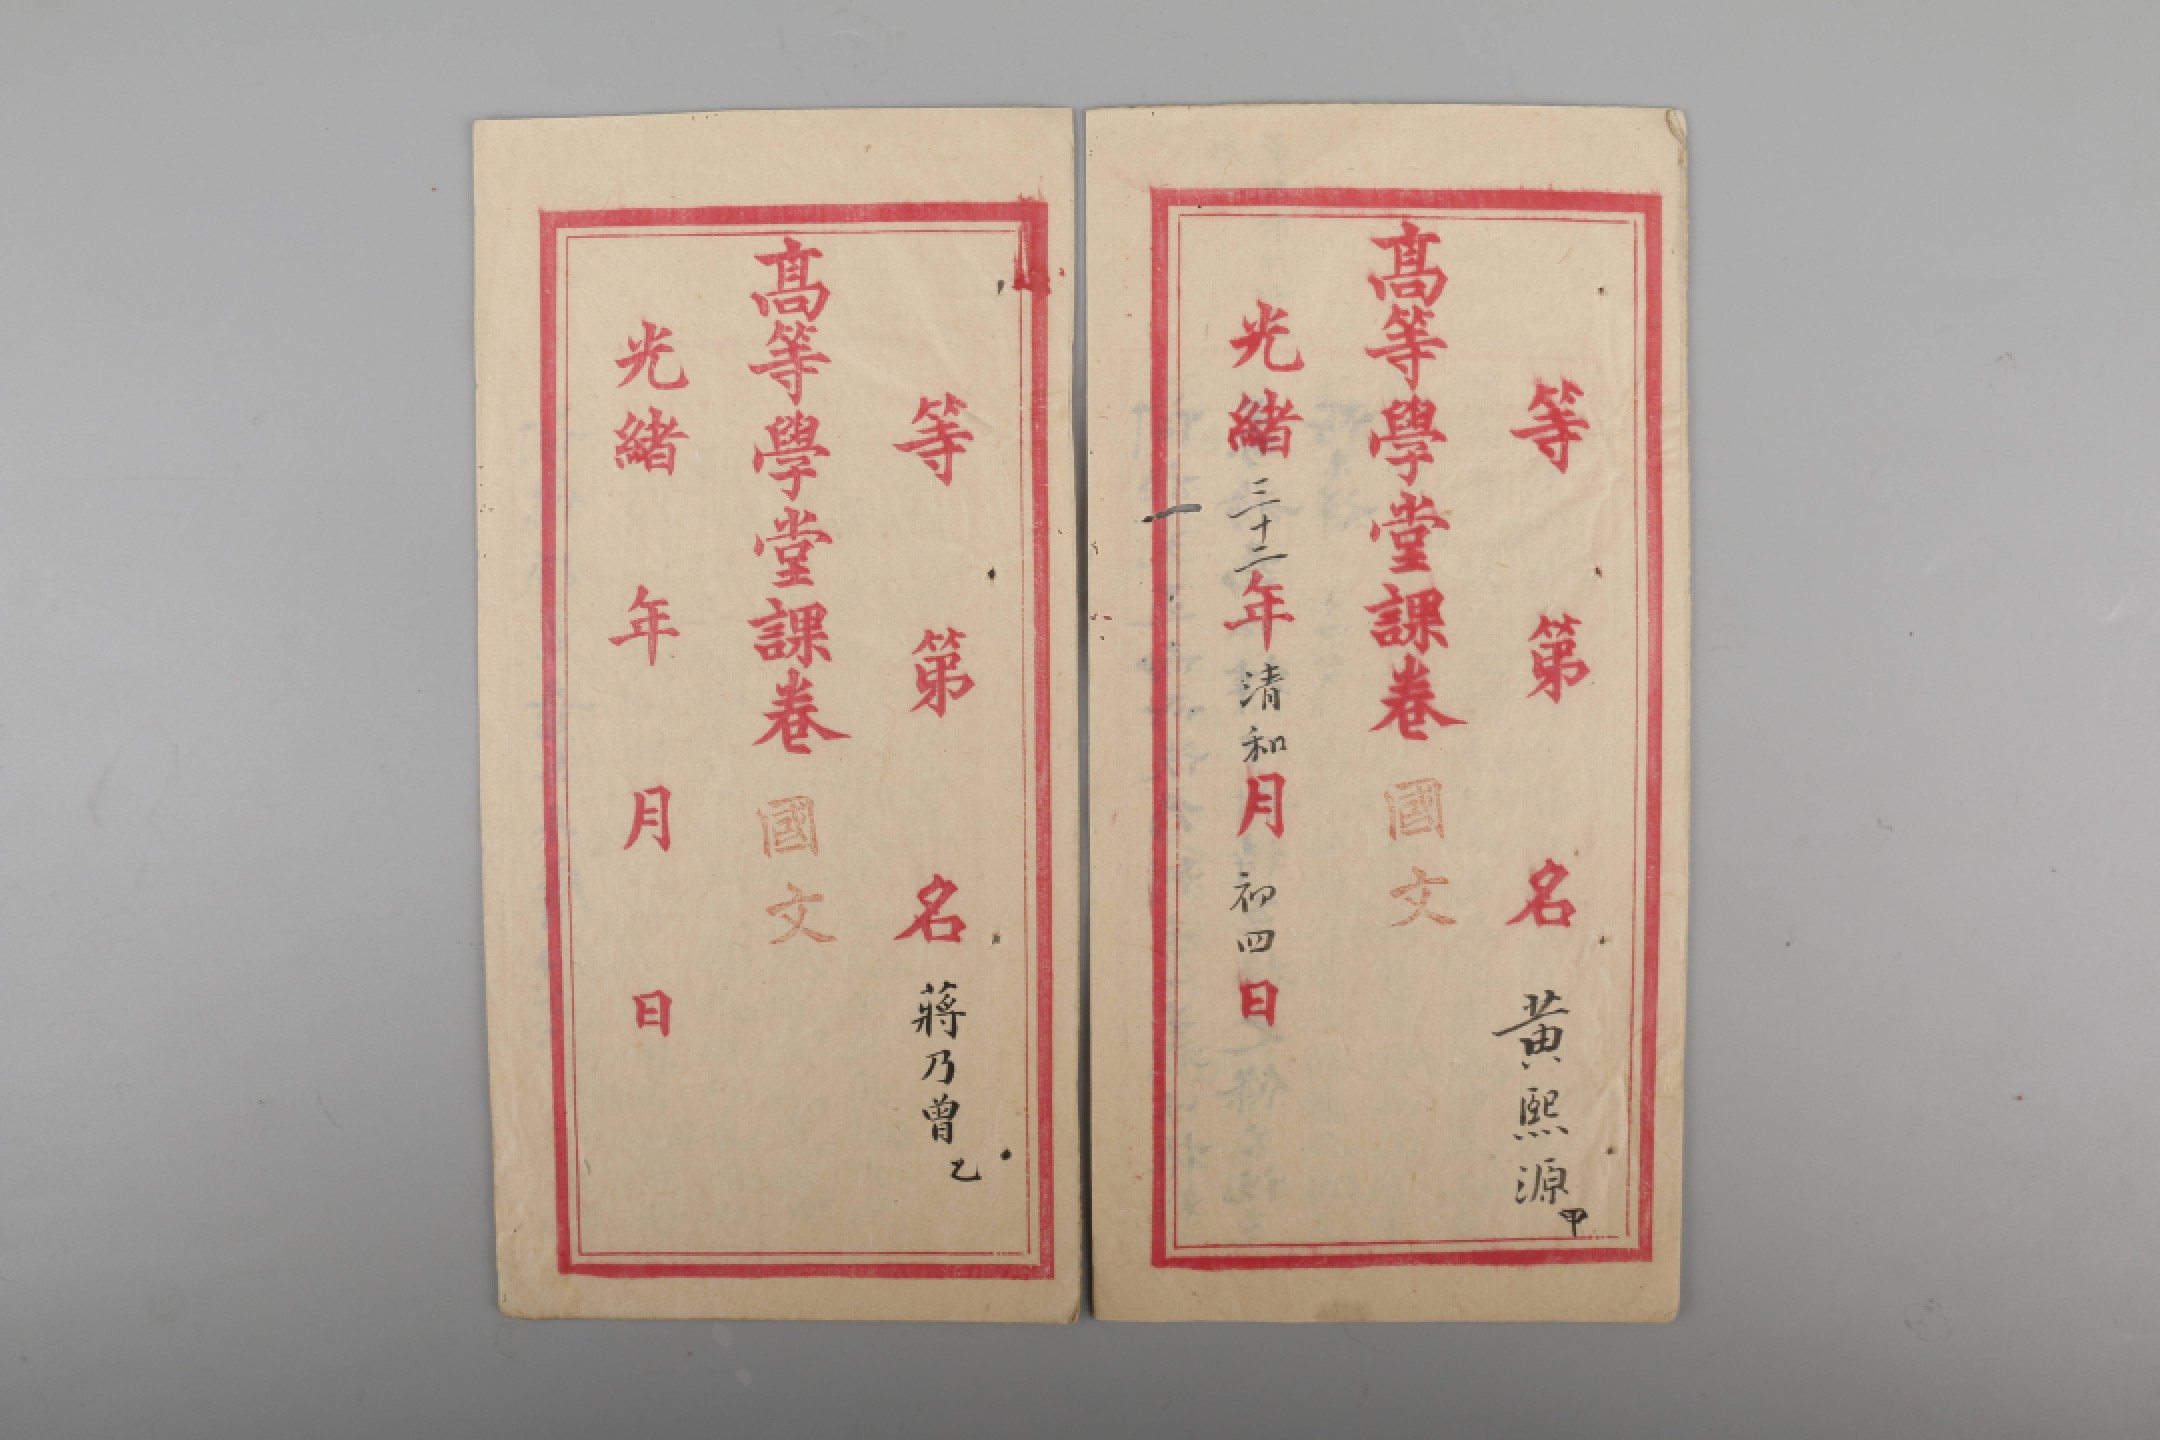 等第名黄熙源甲
高等學堂課卷國文
光緒三十二年清和月初四日
等第名蔣乃曾乙
高等學堂課卷國文
光緒年月日